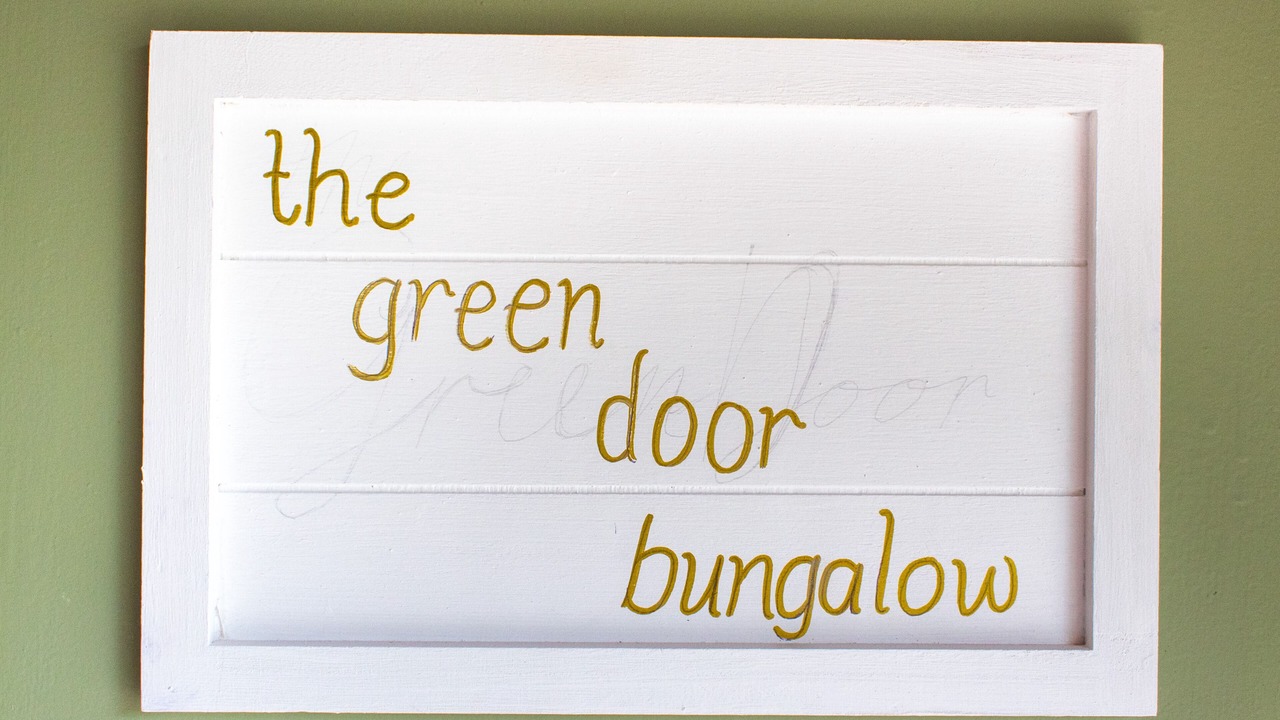 the
green
door
bungalow
green Door